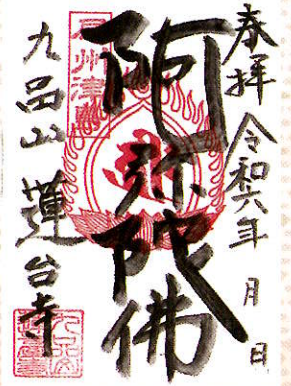 奉拝 令和六年 月 日
阿弥陀佛
九品山 蓮台寺